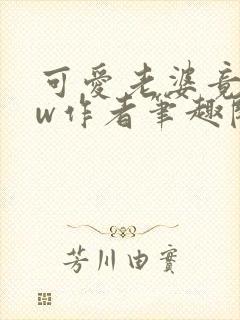 可愛老婆竟
w作者筆趣閣
芳川由實